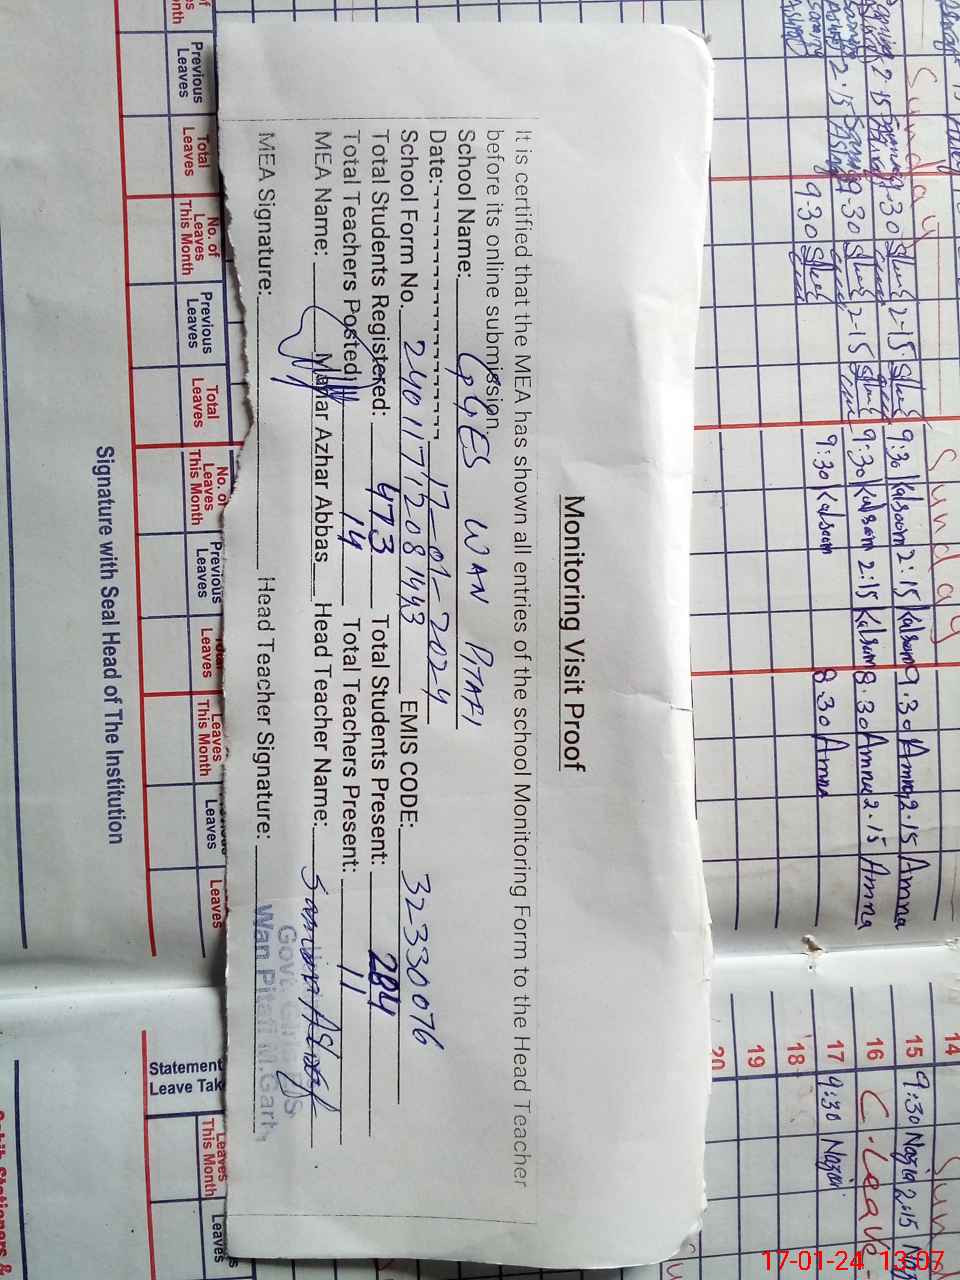 Monitoring Visit Proof
It is certified that the MEA has shown all entries of the school Monitoring Form to the Head Teacher
before its online submission.
School Name: GGES WAN PITAFI
Date: 17-01-2024
School Form No. 24011712081443 EMIS CODE: 32330076
Total Students Registered: 473 Total Students Present: 284
Total Teachers Posted: 14 Total Teachers Present: 11
MEA Name: Mazhar Azhar Abbas Head Teacher Name:
MEA Signature: Head Teacher Signature:
Wan Pitafi M.Garh
Sunday
Sunday
9:30 Kalsoom 2:15 Kalsoom 9:30 Amna 2:15 Amna
9:30 Kalsoom 2:15 Kalsoom 8:30 Amna 2:15 Amna
9:30 Kalsoom 8:30 Amna
14
15 9:30 Nazia 2:15
16 C.Leave
17 9:30 Nazia
18
19
20
Previous Leaves
Total Leaves
No. of Leaves This Month
Previous Leaves
Total Leaves
No. of Leaves This Month
Previous Leaves
Leaves
Leaves This Month
Leaves
Leaves
Signature with Seal Head of The Institution
Statement
Leave Tak
Leaves This Month
Leaves
Stationers &
17-01-24 13:07